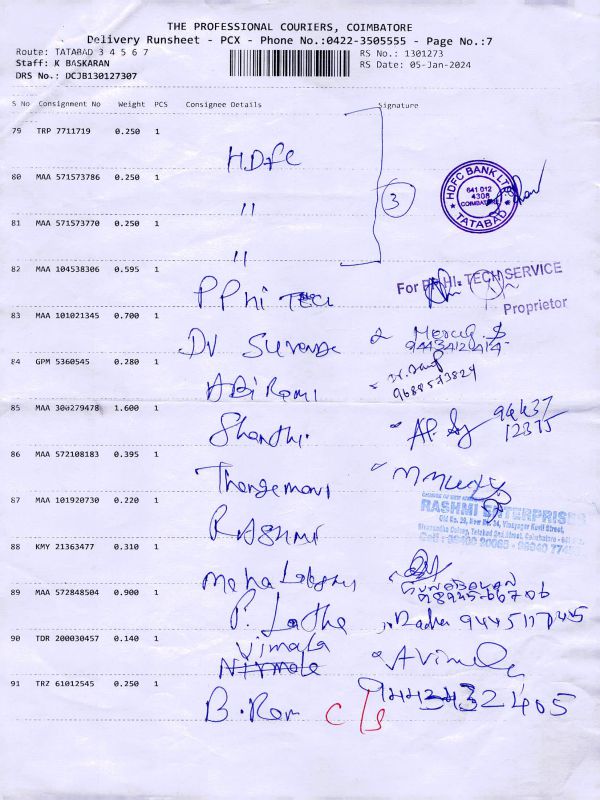 THE PROFESSIONAL COURIERS, COIMBATORE
Delivery Runsheet - PCX - Phone No.:0422-3505555 - Page No.:7
Route: TATABAD 3 4 5 6 7
RS No.: 1301273
Staff: K BASKARAN
RS Date: 05-Jan-2024
DRS No.: DCJB130127307
S No Consignment No Weight PCS Consignee Details Signature
79 TRP 7711719 0.250 1
HDFC
80 MAA 571573786 0.250 1
"
3
HDFC BANK LTD
641 012
4308
COIMBATORE
TATABAD
81 MAA 571573770 0.250 1
"
82 MAA 104538306 0.595 1
P PHi TECH
For HI-TECH SERVICE
Proprietor
83 MAA 101021345 0.700 1
DV
84 GPM 5360545 0.280 1
ABi Rami
85 MAA 300279478 1.600 1
Shanthi.
94437
12375
86 MAA 572108183 0.395 1
Thangamani
87 MAA 101920730 0.220 1
RASHMI
RASHMI ENTERPRISES
88 KMY 21363477 0.310 1
Maha
89 MAA 572848504 0.900 1
P. Latha
Radha
90 TDR 200030457 0.140 1
Vimala
Nirmala
A Vimala
91 TRZ 61012545 0.250 1
B. Ram c/s